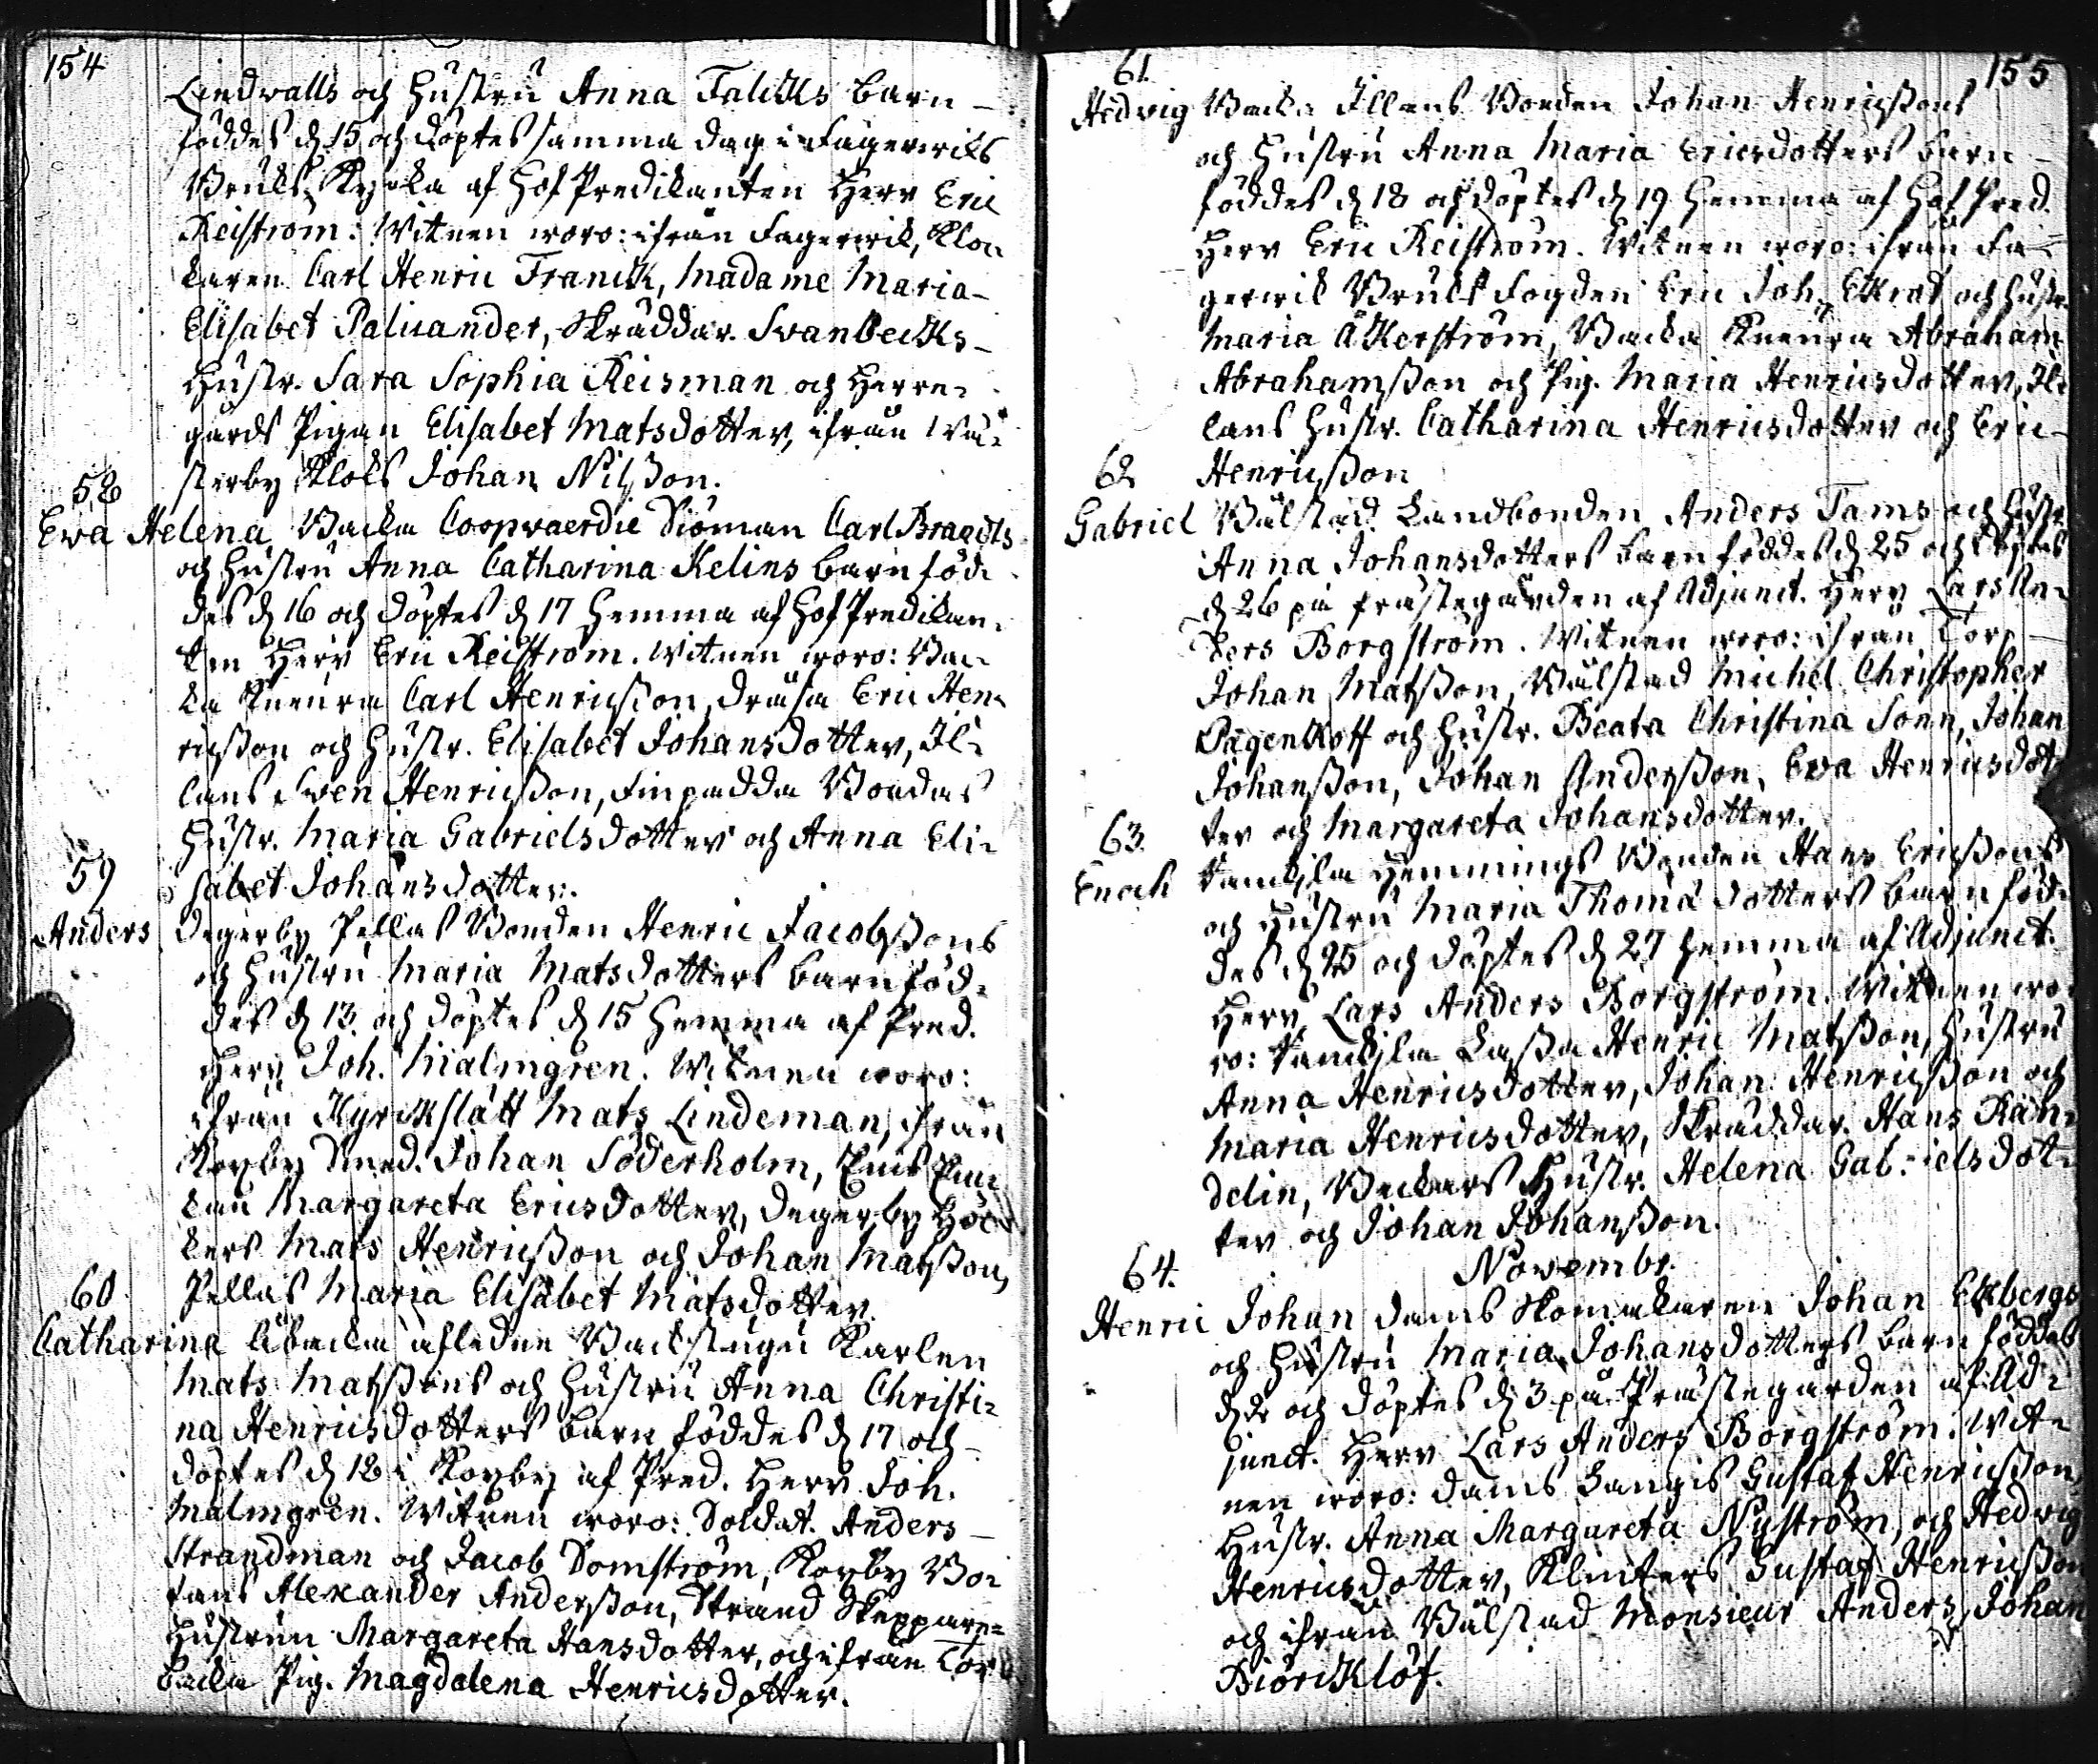 154
Lindwalls och Hustru Anna Falcks barn
föddes d. 15 och döptes samma dag i Fagerwiks
Bruks Kyrka af Hof Predikanten Herr Eric
Reiström. Witnen woro: ifrån Fagerwik, Kloc-
karen Carl Henric Franck, Madame Maria
Elisabet Paliander, Skräddar. Svanbecks
Hustr. Sara Sophia Reisman och Herre-
gårds Pigan Elisabet Matsdotter, ifrån Wä-
sterby Kloks Johan Nilsson.
58
Ewa Helena Backa Coopvaerdie Siöman Carl Brandts
och Hustru Anna Catharina Kelins barn föd-
des d. 16 och döptes d. 17 hemma af Hof Predikan-
ten Herr Eric Reiström. Witnen woro: Bac-
ka Carl Henricsson, Dräsa Eric Hen-
ricsson och Hustr. Elisabet Johansdotter, Il-
lans Sven Henricsson, Finpadda Bondas
Hustr. Maria Gabrielsdotter och Anna Eli-
sabet Johansdotter.
59
Anders Degerby Pellas Bonden Henric Jacobssons
och Hustru Maria Matsdotters barn föd-
des d. 13. och döptes d. 15 hemma af Pred.
Herr Joh. Malmgren. Witnen woro:
ifrån Kyrckslätt Mats Lindeman, ifrån
Koxby Smed. Johan Söderholm,
Margareta Ericsdotter, Degerby Höc-
kers Mats Henricsson och Johan Matsson,
Pellas Maria Elisabet Matsdotter.
60
Catharina afledne Backstugu Karlen
Mats Matssons och Hustru Anna Christi-
na Henricsdotters barn föddes d. 17 och
döptes d. 18 i Koxby af Pred. Herr Joh.
Malmgren. Witnen woro: Soldat. Anders
Strandman och Jacob Domström, Koxby Bo-
Alexander Andersson, Strand Skeppare-
Hustrun Margareta Hansdotter, och ifrån
Backa Pig. Magdalena Henricsdotter.
155
61.
Hedvig Backa Illans Bonden Johan Henricssons
och Hustru Anna Maria Ericsdotters barn
föddes d. 18 och döptes d. 19 hemma af Hof Pred.
Herr Eric Reiström. Witnen woro: ifrån Fa-
gerwik Bruks Fogden Eric Joh. och Hustr.
Maria Åkerström, Backa Abraham
Abrahamsson och Pig. Maria Henricsdotter, Il-
lans Hustr. Catharina Henricsdotter och Eric
Henricsson
62
Gabriel Wålstad Landbonden Anders Tams och Hustr.
Anna Johansdotters barn föddes d. 25 och döptes
d. 26 på Prästegården af Adjunct. Herr Lars An-
ders Borgström. Witnen woro: ifrån Torp
Johan Matsson, Wålstad Michel Christopher
Pagenkoff och Hustr. Beata Christina Sonn, Johan
Johansson, Johan Andersson, Ewa Henricsdot-
ter och Margareta Johansdotter.
63.
Enoch Hemmings Bonden Hans Ericssons
och Hustru Maria Thomä dotters barn föd-
des d. 25 och döptes d. 27 hemma af Adjunct.
Herr Lars Anders Borgström. Witnen wo-
ro: Lassa Henric Matsson, Hustru
Anna Henricsdotter, Johan Henricsson och
Maria Henricsdotter, Skräddar. Hans Ran-
delin, Backars Hustr. Helena Gabrielsdot-
ter och Johan Johansson.
Novembr.
64.
Henric Johan Dams Skomakaren Johan Ekbergs
och Hustru Maria Johansdotters barn föddes
d. 2 och döptes d. 3 på Prästegården af Ad-
junct. Herr Lars Anders Borgström. Wit-
nen woro: Dams Langis Gustaf Henricsson,
Hustr. Anna Margareta Nyström, och Hedvig
Henricsdotter, Klinters Gustaf Henricsson
och ifrån Wålstad Monsieur Anders Johan
Biörcklöf.